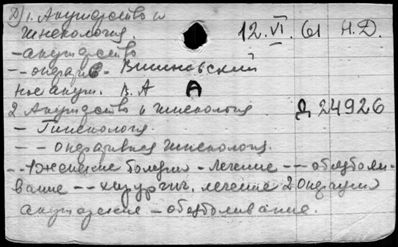 Д) 1. Акушерство и
гинекология. 12.VI.61 Н.Д.
– акушерство
– – операtив- Вишневский
ное акуш. В. А А
2 Акушерство и гинекология Д 24926
– Гинекология
– – Оперативная гинекология.
– – Женские болезни – лечение – – обезболи-
вание – – хирургич. лечение 2 Операции
акушерские – обезболивание.